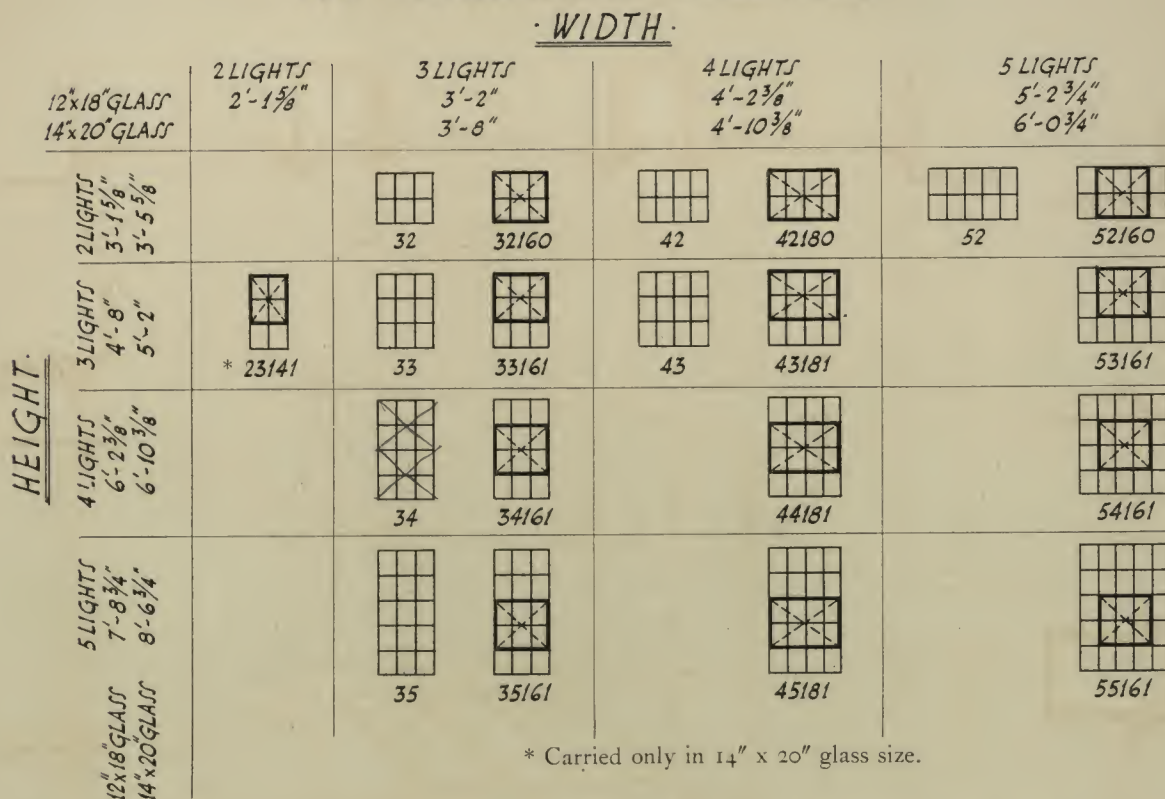 · WIDTH ·
12"x18" GLASS
14"x20" GLASS
2 LIGHTS
2'-1 5/8"
3 LIGHTS
3'-2"
3'-8"
4 LIGHTS
4'-2 3/8"
4'-10 3/8"
5 LIGHTS
5'-2 3/4"
6'-0 3/4"
HEIGHT ·
2 LIGHTS
3'-1 5/8"
3'-5 5/8"
32
32160
42
42180
52
52160
3 LIGHTS
4'-8"
5'-2"
* 23141
33
33161
43
43181
53161
4 LIGHTS
6'-2 3/8"
6'-10 3/8"
34
34161
44181
54161
5 LIGHTS
7'-8 3/4"
8'-6 3/4"
35
35161
45181
55161
12"x18" GLASS
14"x20" GLASS
* Carried only in 14" x 20" glass size.